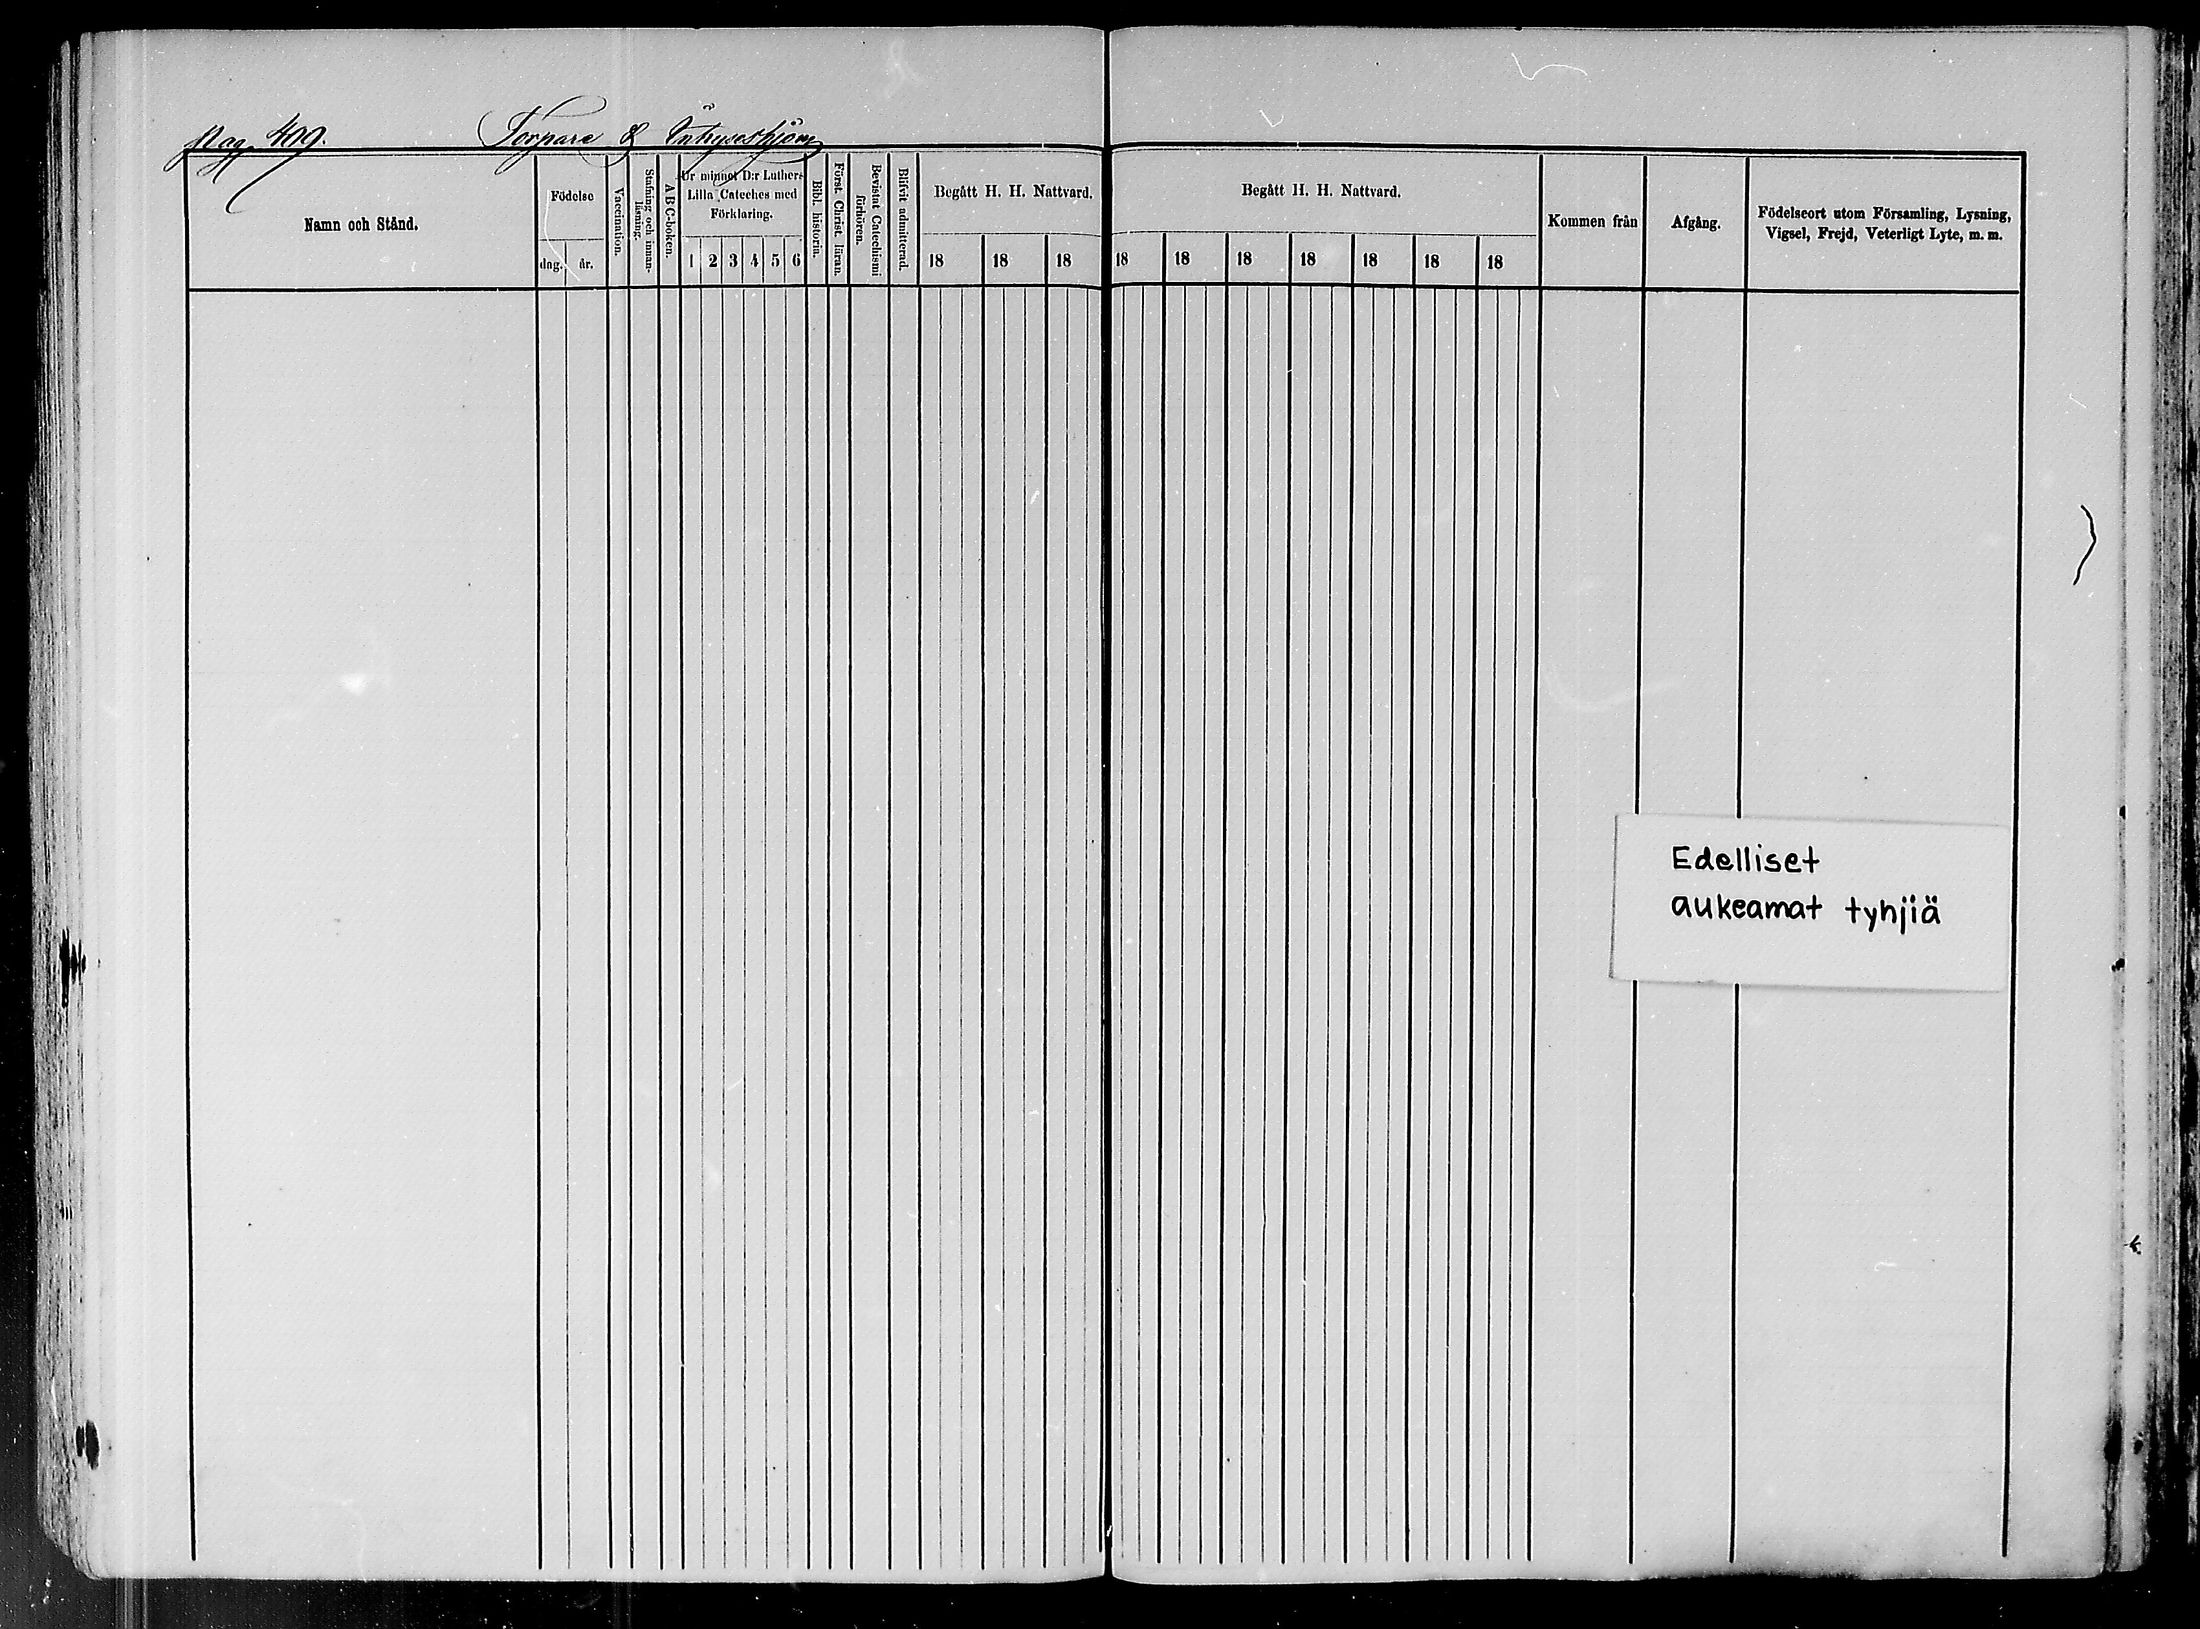 Pag. 409. Torpare &
Namn och Stånd.
Födelse
dag. år.
Vaccination.
Stafning och innan-
läsning.
A B C-boken.
Ur minnet D:r Luthers
Lilla Cateches med
Förklaring.
1 2 3 4 5 6
Bibl. historia.
Först. Christ. läran.
Bevistat Catechismi
förhören.
Blifvit admitterad.
Begått H. H. Nattvard.
18 18 18
Begått H. H. Nattvard.
18 18 18 18 18 18 18
Kommen från
Afgång.
Födelseort utom Församling, Lysning,
Vigsel, Frejd, Veterligt Lyte, m. m.
Edelliset
aukeamat tyhjiä